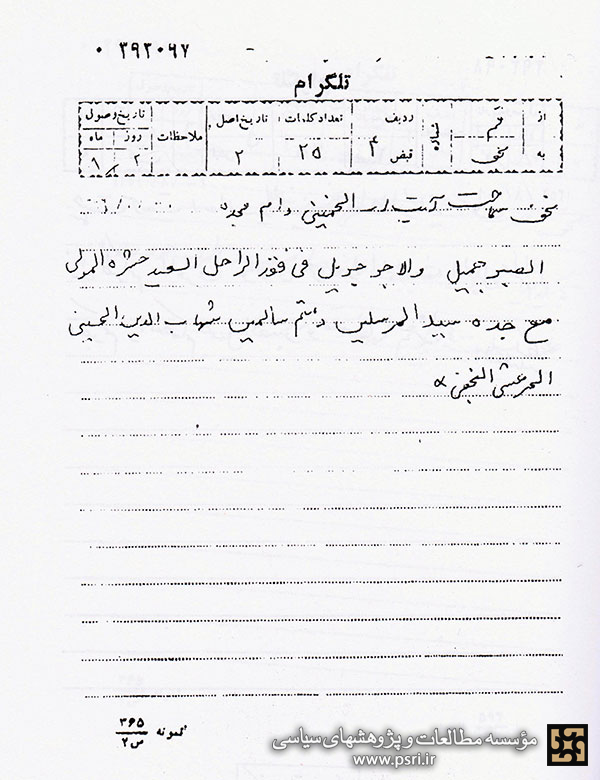 ۰ ۳۹۳۰۶۷
تلگرام
از قم
به نجف
شماره
ردیف
قبض ۴
تعداد کلمات
۲۵
تاریخ اصل
۲
ملاحظات
تاریخ وصول
روز ماه
۲ / ۱
نجف سماحت آیت الله الخمینی دام مجده
الصبر جمیل والاجر جزیل فی فقد الراحل السعید حشره المولی
مع جده سید المرسلین دمتم سالمین شهاب الدین الحسینی
المرعشی النجفی
نمونه ۳۶۵
س۲
مؤسسه مطالعات و پژوهشهای سیاسی
www.psri.ir